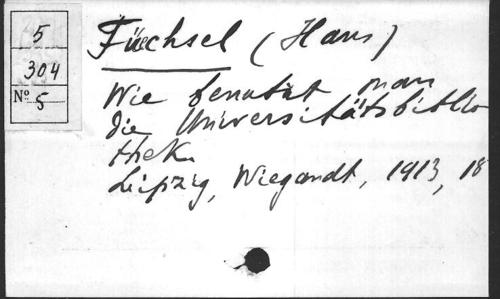 5
304
Nº 5
Füchsel (Hans)
Wie benutzt man
die Universitätsbiblio
thek.
Leipzig, Wiegandt, 1913, 18